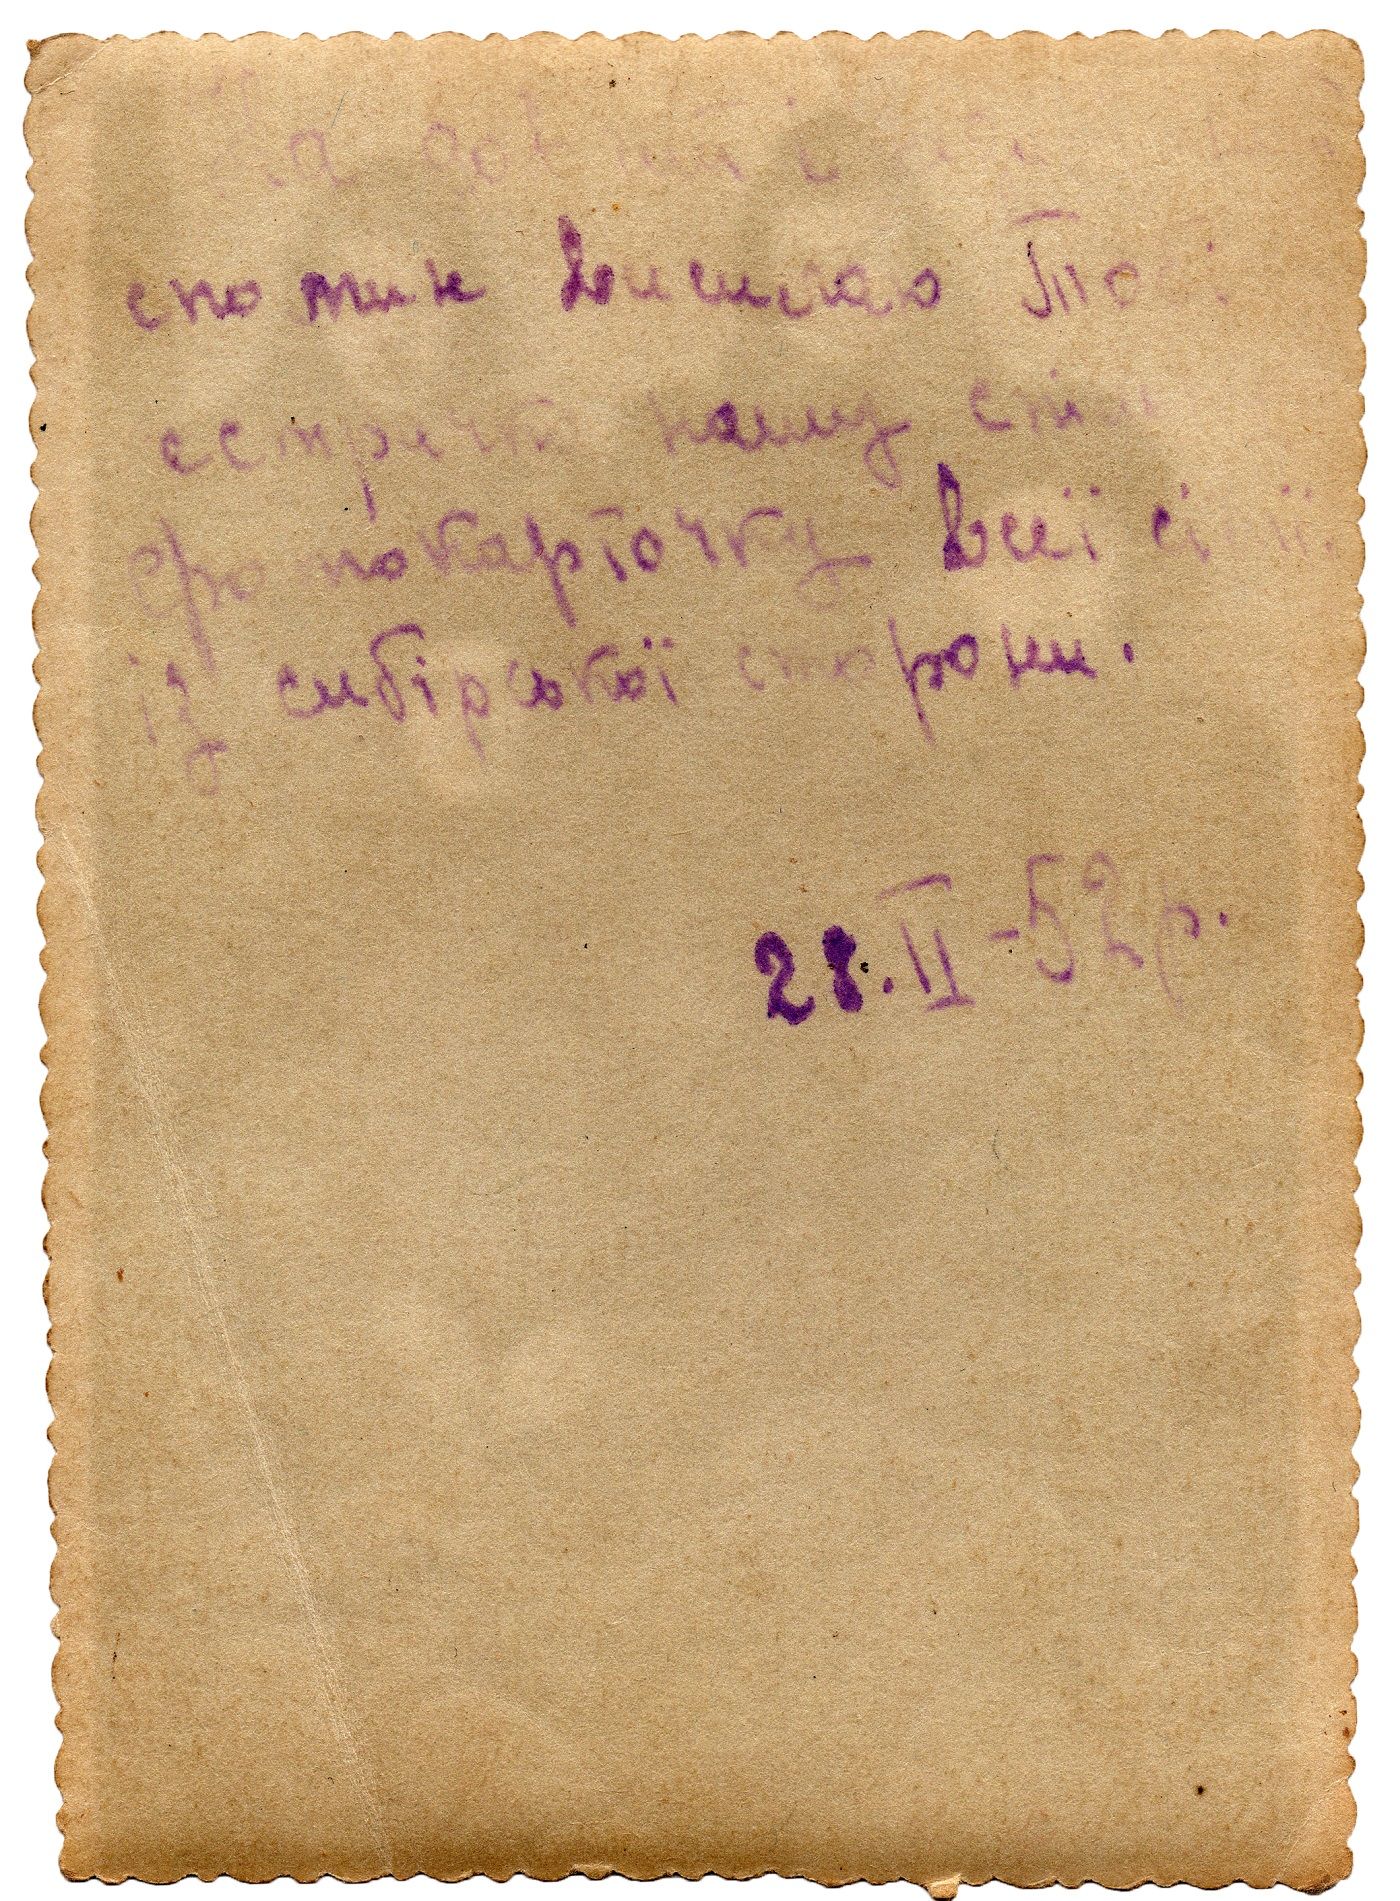 На довгий
спомин висилаю Тобі
сестричко нашу
фотокарточку всієї сімії
із сибірської сторони.
28.II-52р.